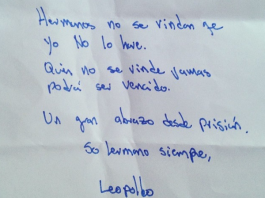 Hermanos no se rindan qe
yo No lo hare.
Quien no se rinde jamas
podrá ser vencido.
Un gran abrazo desde prisión.
So hermano siempre,
Leopoldo